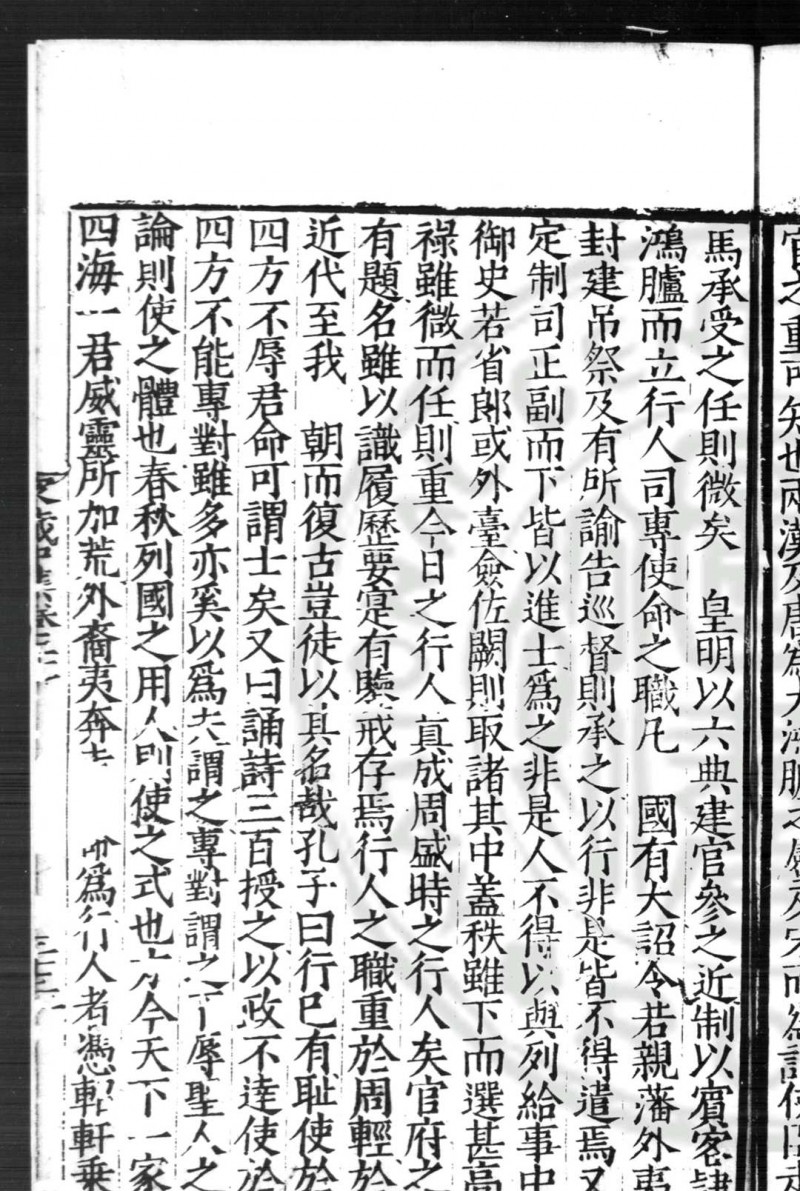 官之重可知也兩漢及唐爲大鴻臚之屬及宋而爲
馬承受之任則微矣　皇明以六典建官參之近制以賓客
鴻臚而立行人司專使命之職凡　國有大詔令若親藩外夷
封建吊祭及有所諭告巡督則承之以行非是皆不得遣焉又
定制司正副而下皆以進士爲之非是人不得以與列給事中
御史若省郎或外臺僉佐闕則取諸其中蓋秩雖下而選甚高
祿雖微而任則重今日之行人眞成周盛時之行人矣官府之
有題名雖以識履歷要寔有鑒戒存焉行人之職重於周輕於
近代至我　朝而復古豈徒以其名哉孔子曰行己有耻使於
四方不辱君命可謂士矣又曰誦詩三百授之以政不達使於
四方不能專對雖多亦奚以爲夫謂之專對謂之不辱聖人之
論則使之體也春秋列國之用人則使之式也方今天下一家
四海一君威靈所加荒外裔夷奔
爲行人者憑軒乘
卷三